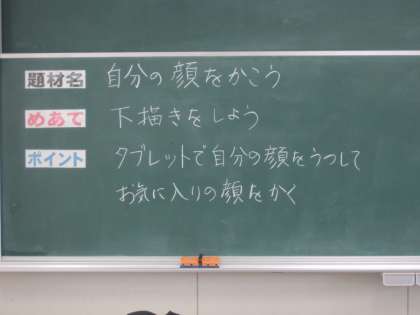 題材名 自分の顔をかこう
めあて 下描きをしよう
ポイント タブレットで自分の顔をうつして
お気に入りの顔をかく